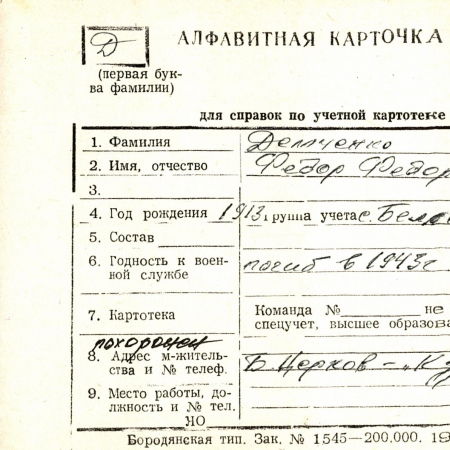 Д
АЛФАВИТНАЯ КАРТОЧКА
(первая бук-
ва фамилии)
для справок по учетной картотеке
1. Фамилия Демченко
2. Имя, отчество Федор Федор
3.
4. Год рождения 1913 группа учета с.
5. Состав
6. Годность к воен- погиб в 1943г
ной службе
7. Картотека Команда № не
спецучет, высшее образова
похоронен
8. Адрес м-житель- Б. Церков –
ства и № телеф.
9. Место работы, до-
лжность и № тел.
ОК
Бородянская тип. Зак. № 1545—200.000. 19